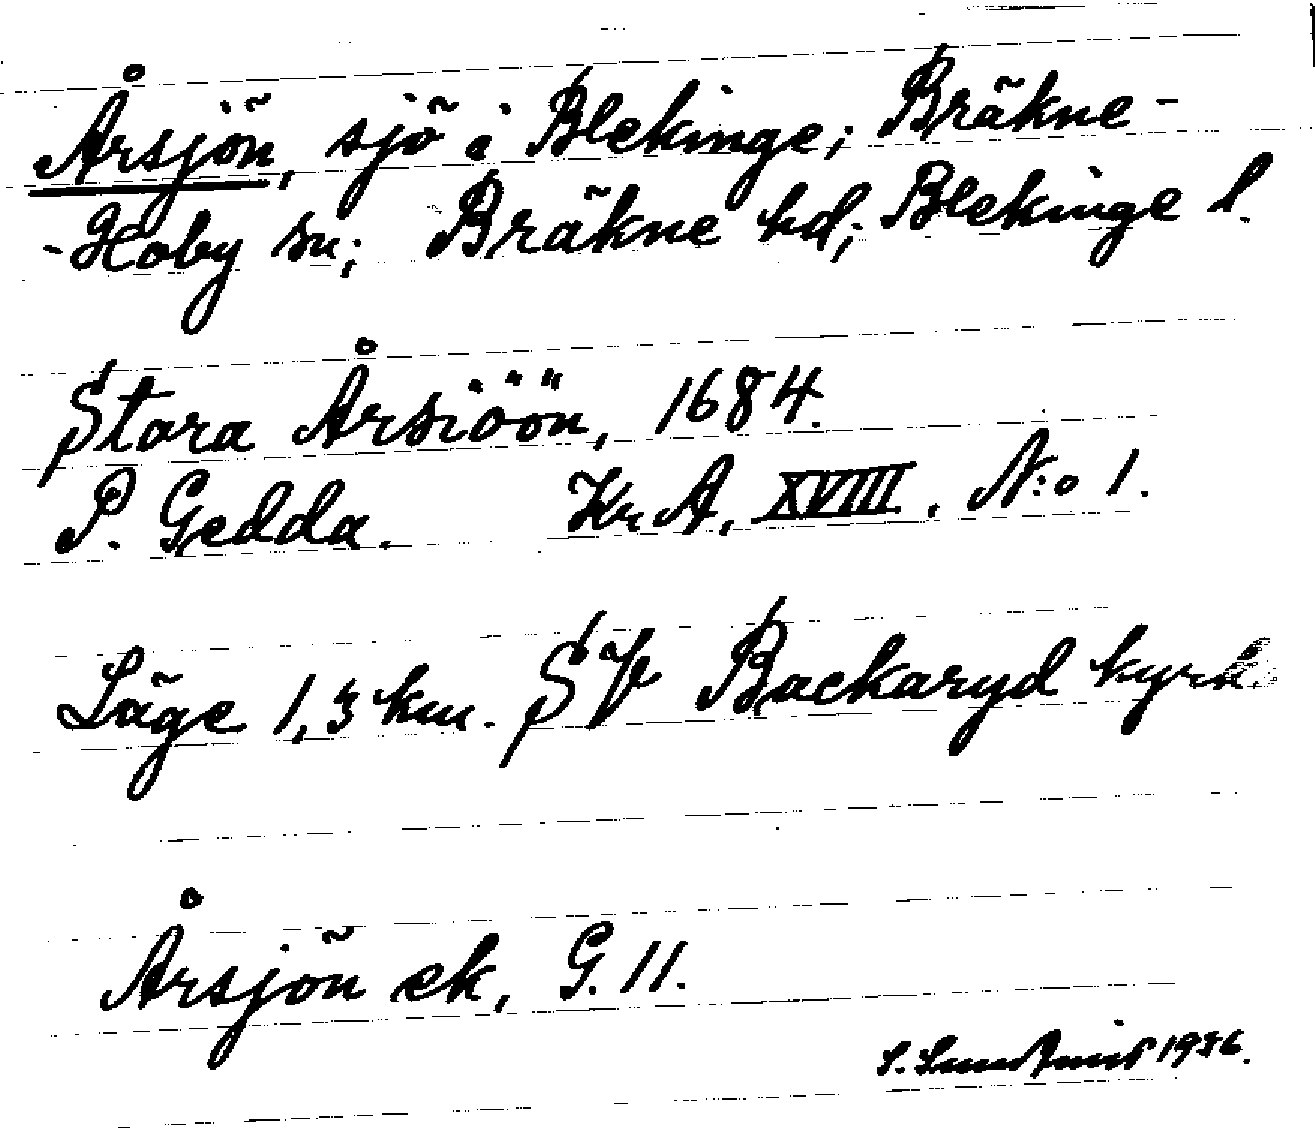 Årsjön, sjö i Blekinge; Bräkne-
-Hoby sn; Bräkne hd; Blekinge l.
Stora Årsiöön, 1684.
P. Gedda. Kr. A. XVIII. N:o 1.
Läge 1,3 km. SV Backaryd kyrk
Årsjön ek, G. 11.
S. 1936.